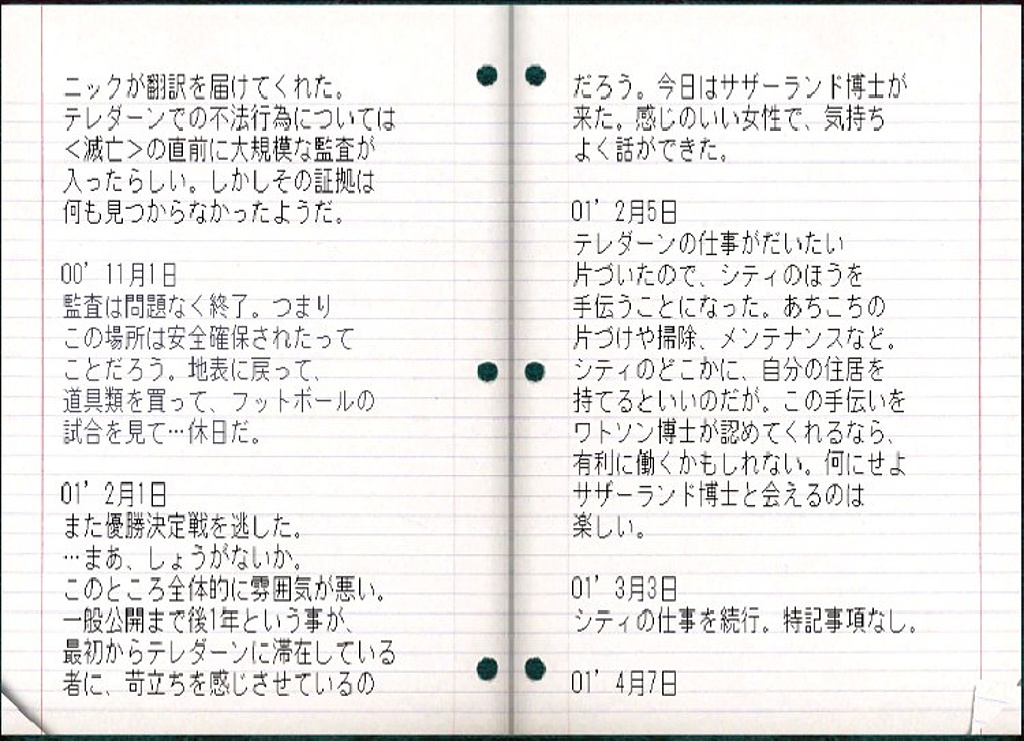 ニックが翻訳を届けてくれた。
テレダーンでの不法行為については
＜滅亡＞の直前に大規模な監査が
入ったらしい。しかしその証拠は
何も見つからなかったようだ。
00' 11月1日
監査は問題なく終了。つまり
この場所は安全確保されたって
ことだろう。地表に戻って、
道具類を買って、フットボールの
試合を見て…休日だ。
01' 2月1日
また優勝決定戦を逃した。
…まあ、しょうがないか。
このところ全体的に雰囲気が悪い。
一般公開まで後1年という事が、
最初からテレダーンに滞在している
者に、苛立ちを感じさせているの
だろう。今日はサザーランド博士が
来た。感じのいい女性で、気持ち
よく話ができた。
01' 2月5日
テレダーンの仕事がだいたい
片づいたので、シティのほうを
手伝うことになった。あちこちの
片づけや掃除、メンテナンスなど。
シティのどこかに、自分の住居を
持てるといいのだが。この手伝いを
ワトソン博士が認めてくれるなら、
有利に働くかもしれない。何にせよ
サザーランド博士と会えるのは
楽しい。
01' 3月3日
シティの仕事を続行。特記事項なし。
01' 4月7日